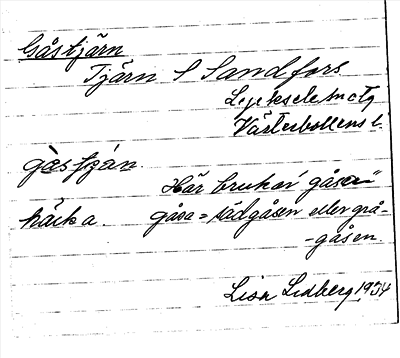 Gåstjärn
Tjärn S Sandfors
Lycksele
Västerbottens l.
gåstján.
Här brukar "gåsen"
häcka. gåsa = sädgåsen eller grå-
-gåsen.
Lisa Lidberg 1934